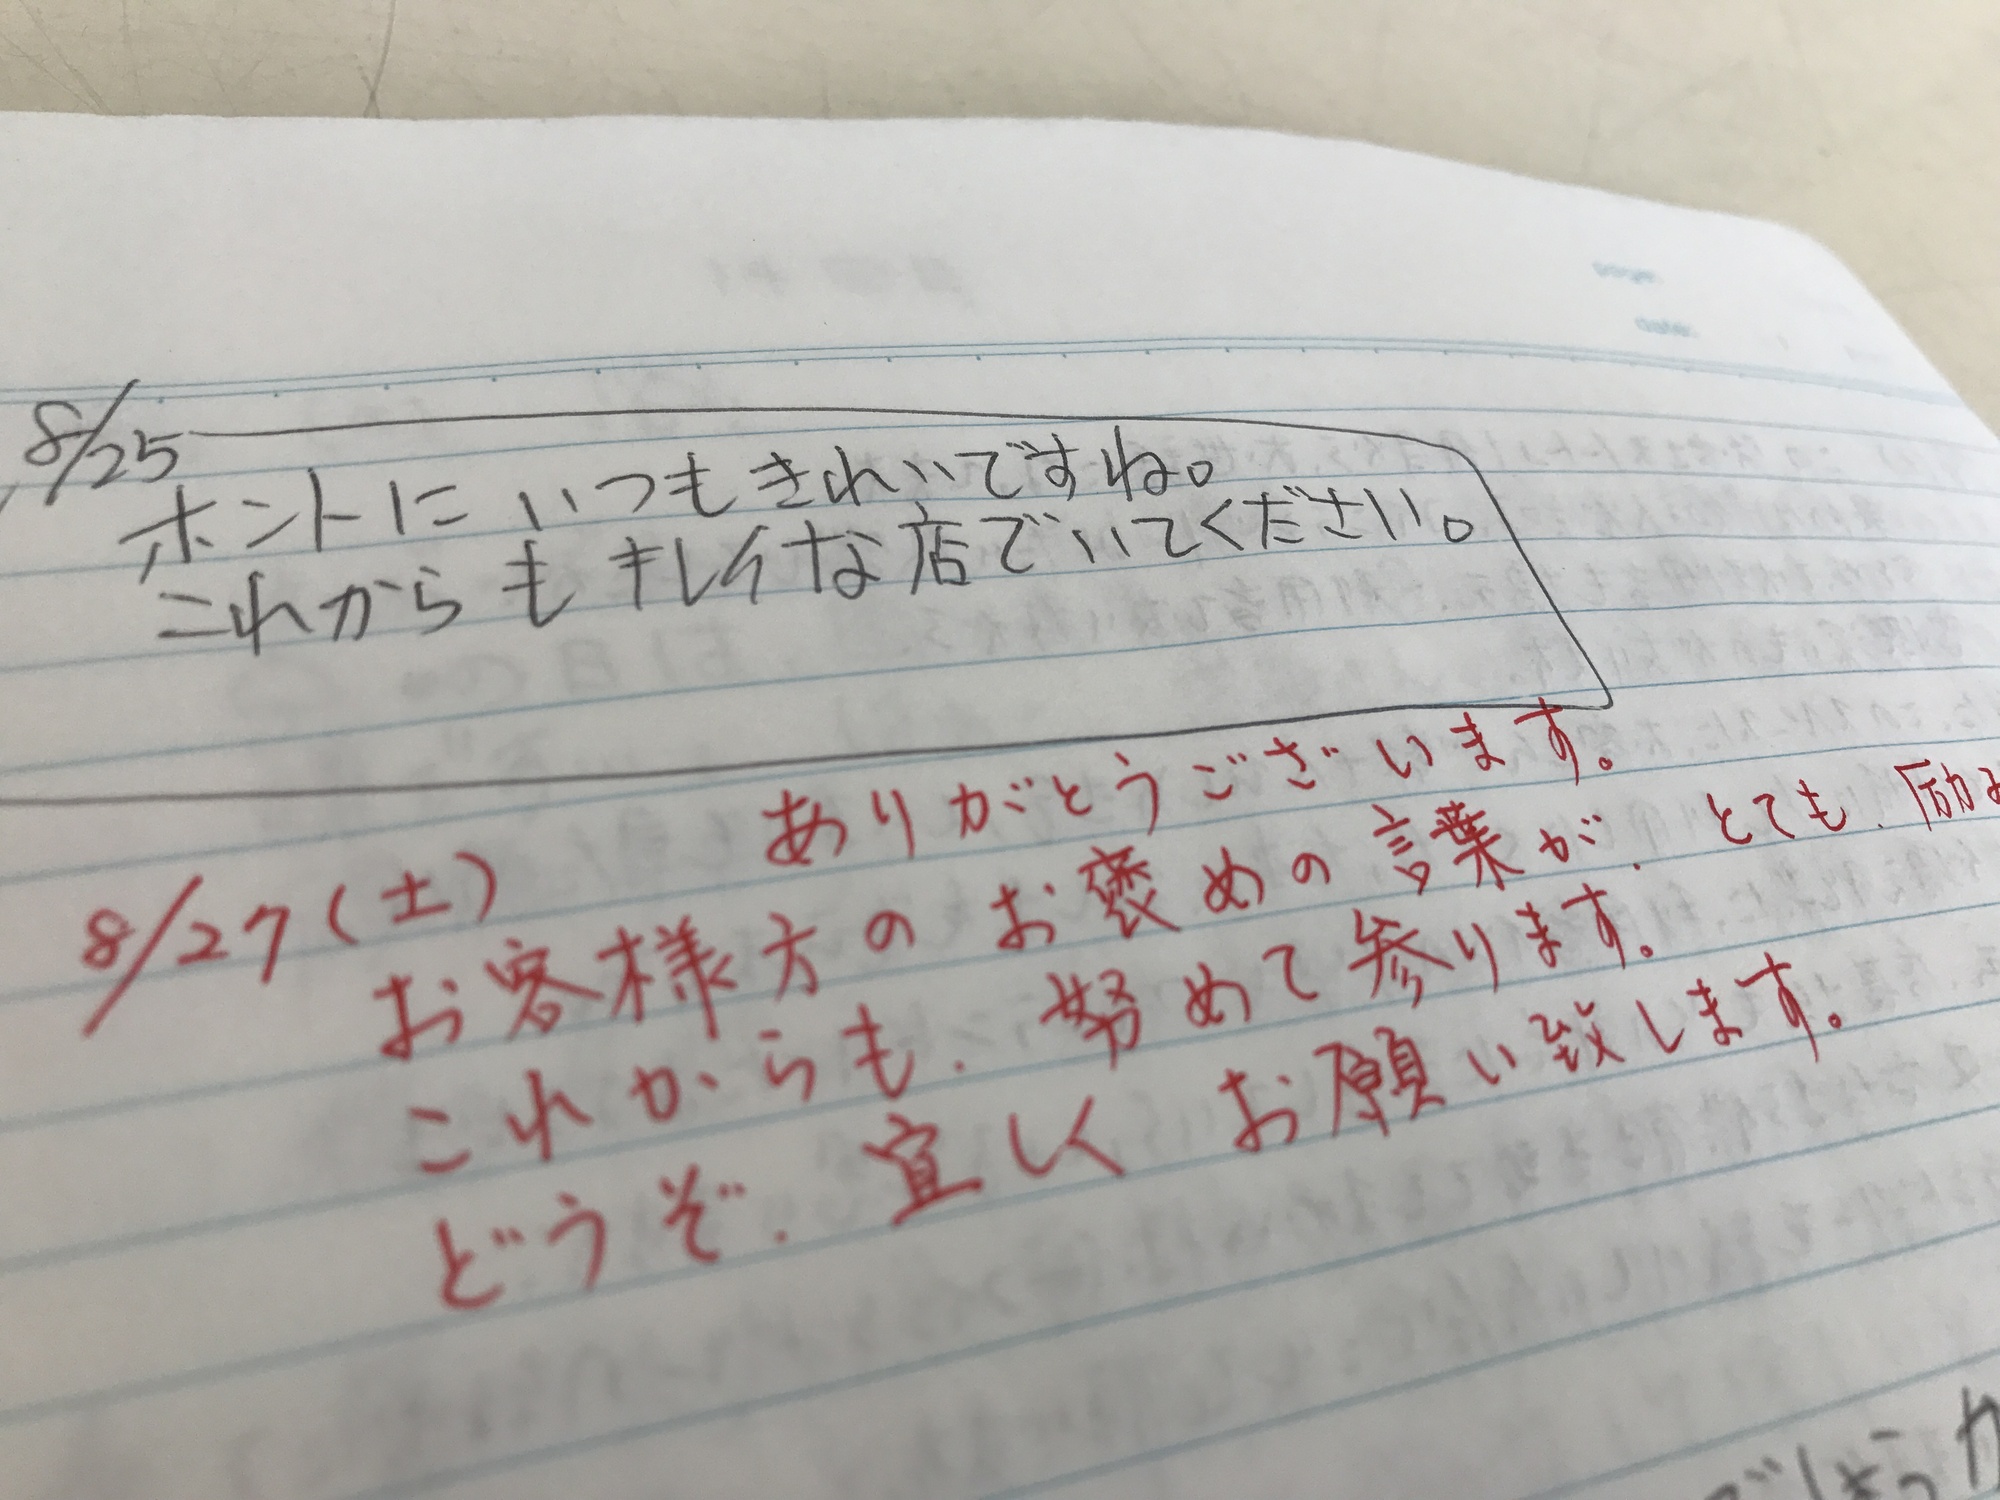 8/25
ホントに いつも きれいですね。
これからも キレイな店でいてください。
ありがとうございます。
8/27(土)
お客様方のお褒めの言葉が、とても、励み
これからも、努めて参ります。
どうぞ、宜しくお願い致します。